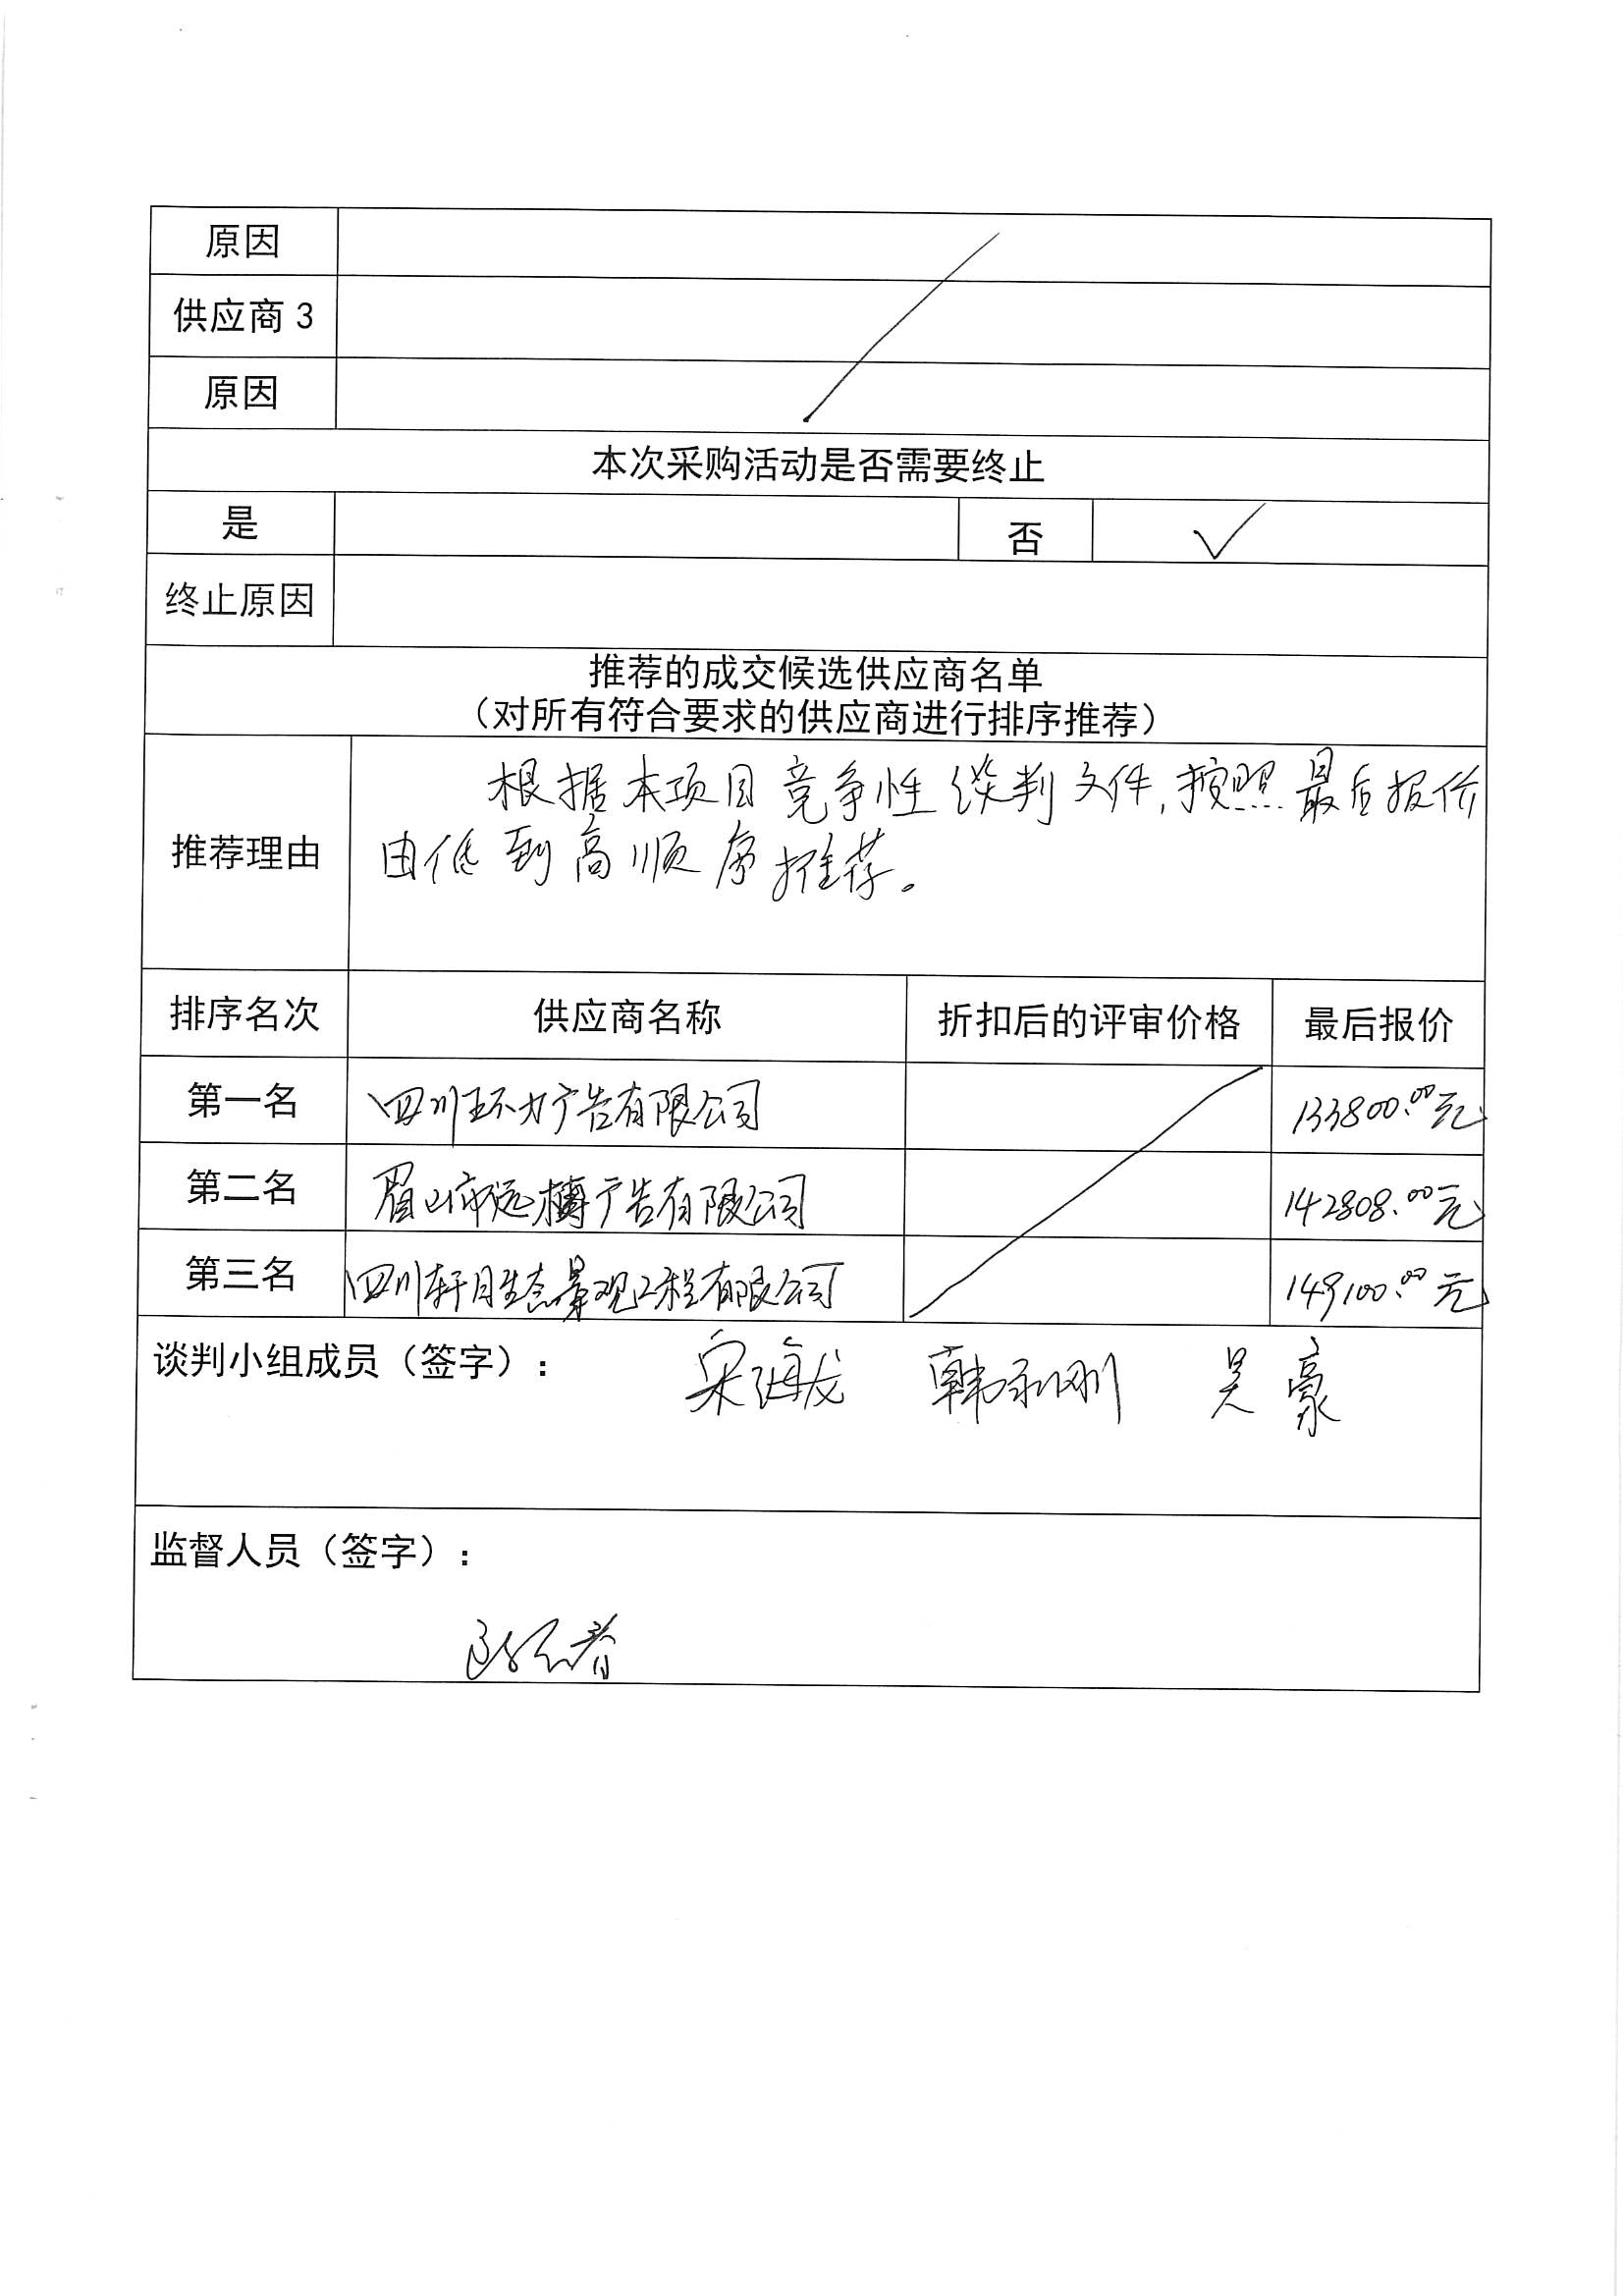 原因
供应商 3
原因
本次采购活动是否需要终止
是 否 √
终止原因
推荐的成交候选供应商名单
（对所有符合要求的供应商进行排序推荐）
根据本项目竞争性谈判文件，按照最后报价
推荐理由
由低到高顺序推荐。
排序名次 供应商名称 折扣后的评审价格 最后报价
第一名 四川环力广告有限公司 133800.00元
第二名 眉山市远樽广告有限公司 142808.00元
第三名 四川轩月生态景观工程有限公司 149100.00元
谈判小组成员（签字）： 宋海龙 韩永刚 吴豪
监督人员（签字）：